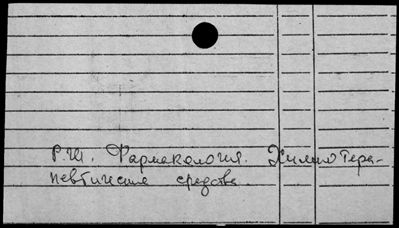 Р.Ш. Фармакология. Химиотера-
певтические средства.